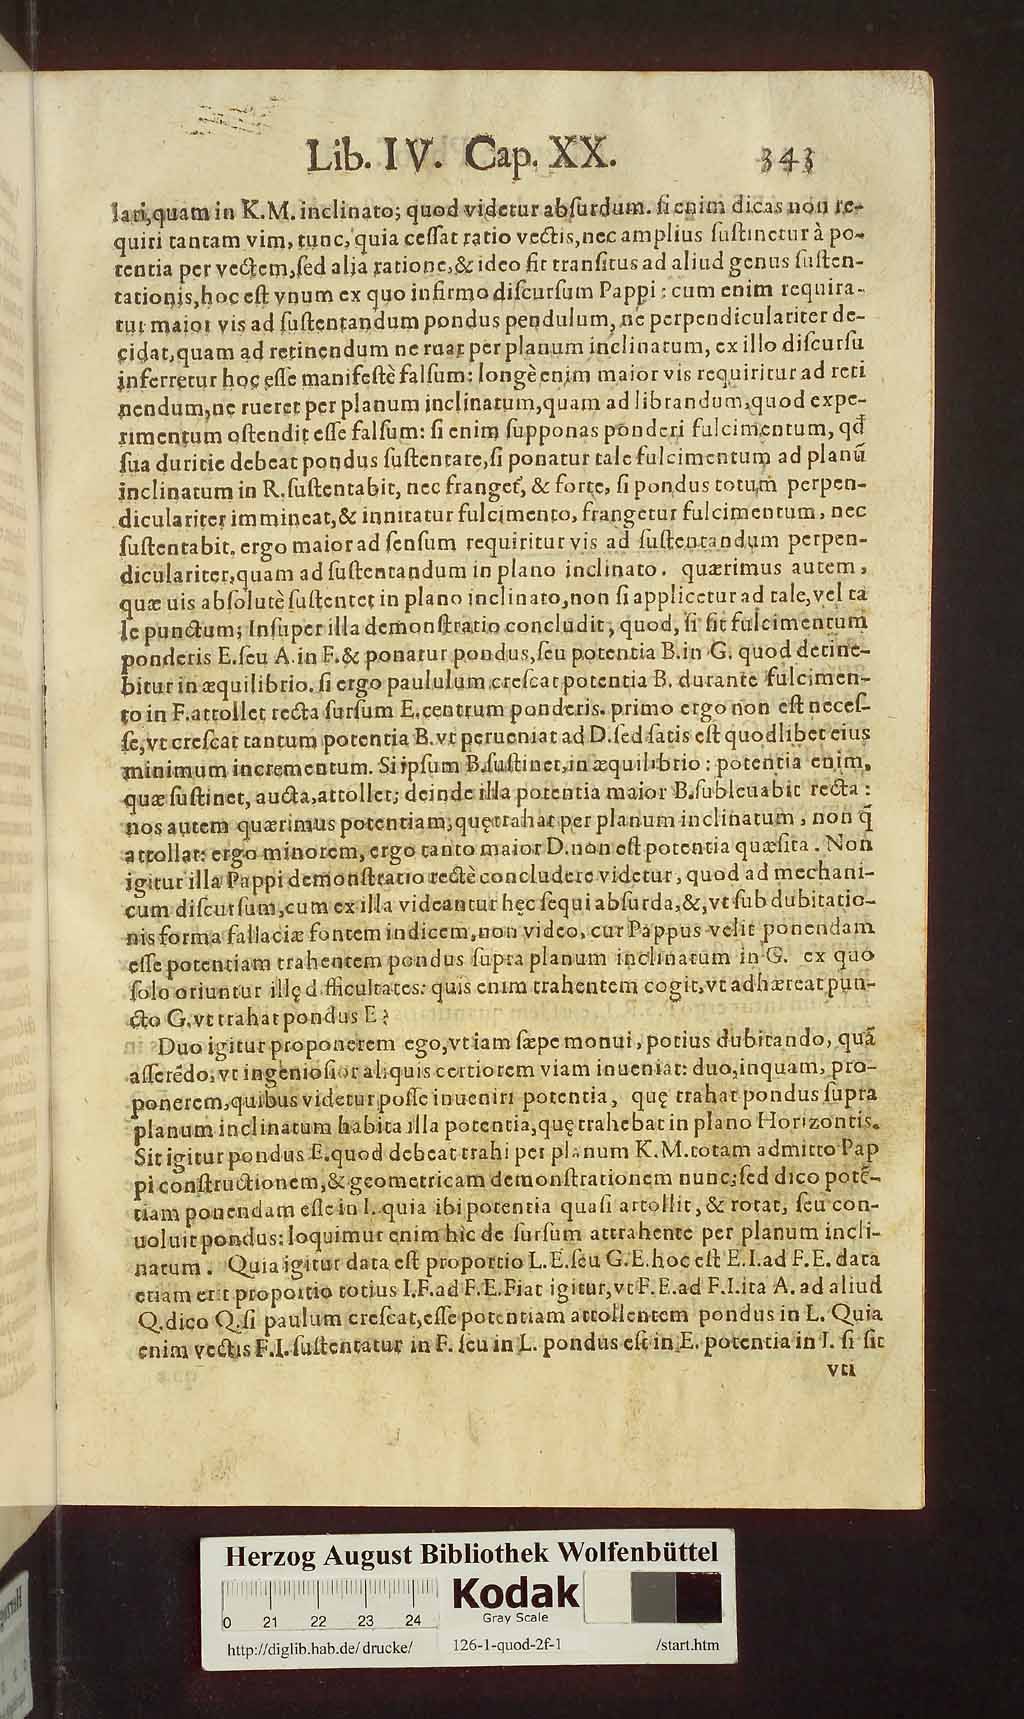 Lib. IV. Cap. XX. 343
lari, quam in K.M. inclinato; quod videtur abſurdum. ſi enim dicas non re-
quiri tantam vim, tunc, quia ceſſat ratio vectis, nec amplius ſuſtinetur à po-
tentia per vectem, ſed alia ratione, & ideo fit tranſitus ad aliud genus ſuſten-
tationis, hoc eſt vnum ex quo infirmo diſcurſum Pappi: cum enim requira-
tur maior vis ad ſuſtentandum pondus pendulum, ne perpendiculariter de-
cidat, quam ad retinendum ne ruat per planum inclinatum, ex illo diſcurſu
inferretur hoc eſſe manifeſtè falſum: longè enim maior vis requiritur ad reti
nendum, ne rueret per planum inclinatum, quam ad librandum, quod expe-
rimentum oſtendit eſſe falſum: ſi enim ſupponas ponderi fulcimentum, qđ
ſua duritie debeat pondus ſuſtentare, ſi ponatur tale fulcimentum ad planū
inclinatum in R. ſuſtentabit, nec franget, & forte, ſi pondus totum perpen-
diculariter immineat, & innitatur fulcimento, frangetur fulcimentum, nec
ſuſtentabit. ergo maior ad ſenſum requiritur vis ad ſuſtentandum perpen-
diculariter, quam ad ſuſtentandum in plano inclinato. quærimus autem,
quæ uis abſolutè ſuſtentet in plano inclinato, non ſi applicetur ad tale, vel ta
le punctum; Inſuper illa demonſtratio concludit, quod, ſi ſit fulcimentum
ponderis E. ſeu A. in F. & ponatur pondus, ſeu potentia B. in G. quod detine-
bitur in æquilibrio. ſi ergo paululum creſcat potentia B. durante fulcimen-
to in F. attollet recta ſurſum E. centrum ponderis. primo ergo non eſt neceſ-
ſe, vt creſcat tantum potentia B. vt perueniat ad D. ſed ſatis eſt quodlibet eius
minimum incrementum. Si ipſum B. ſuſtinet, in æquilibrio: potentia enim,
quæ ſuſtinet, aucta, attollet; deinde illa potentia maior B. ſubleuabit recta:
nos autem quærimus potentiam, quę trahat per planum inclinatum, non q̃
attollat: ergo minorem, ergo tanto maior D. non eſt potentia quæſita. Non
igitur illa Pappi demonſtratio rectè concludere videtur, quod ad mechani-
cum diſcurſum, cum ex illa videantur hęc ſequi abſurda, &, vt ſub dubitatio-
nis forma fallaciæ fontem indicem, non video, cur Pappus velit ponendam
eſſe potentiam trahentem pondus ſupra planum inclinatum in G. ex quo
ſolo oriuntur illę difficultates: quis enim trahentem cogit, vt adhæreat pun-
cto G. vt trahat pondus E?
Duo igitur proponerem ego, vt iam ſæpe monui, potius dubitando, quā
aſſerēdo, vt ingenioſior aliquis certiorem viam inueniat: duo, inquam, pro-
ponerem, quibus videtur poſſe inueniri potentia, quę trahat pondus ſupra
planum inclinatum habita illa potentia, quę trahebat in plano Horizontis.
Sit igitur pondus E. quod debeat trahi per planum K.M. totam admitto Pap
pi conſtructionem, & geometricam demonſtrationem nunc; ſed dico potē-
tiam ponendam eſſe in I. quia ibi potentia quaſi attollit, & rotat, ſeu con-
uoluit pondus: loquimur enim hic de ſurſum attrahente per planum incli-
natum. Quia igitur data eſt proportio L.E. ſeu G.E. hoc eſt E.I. ad F.E. data
etiam erit proportio totius I.F. ad F.E. Fiat igitur, vt F.E. ad F.I. ita A. ad aliud
Q. dico Q. ſi paulum creſcat, eſſe potentiam attollentem pondus in L. Quia
enim vectis F.I. ſuſtentatur in F. ſeu in L. pondus eſt in E. potentia in I. ſi fit
vti
Herzog August Bibliothek Wolfenbüttel
Kodak
Gray Scale
0 21 22 23 24
http://diglib.hab.de/drucke/ 126-1-quod-2f-1 /start.htm